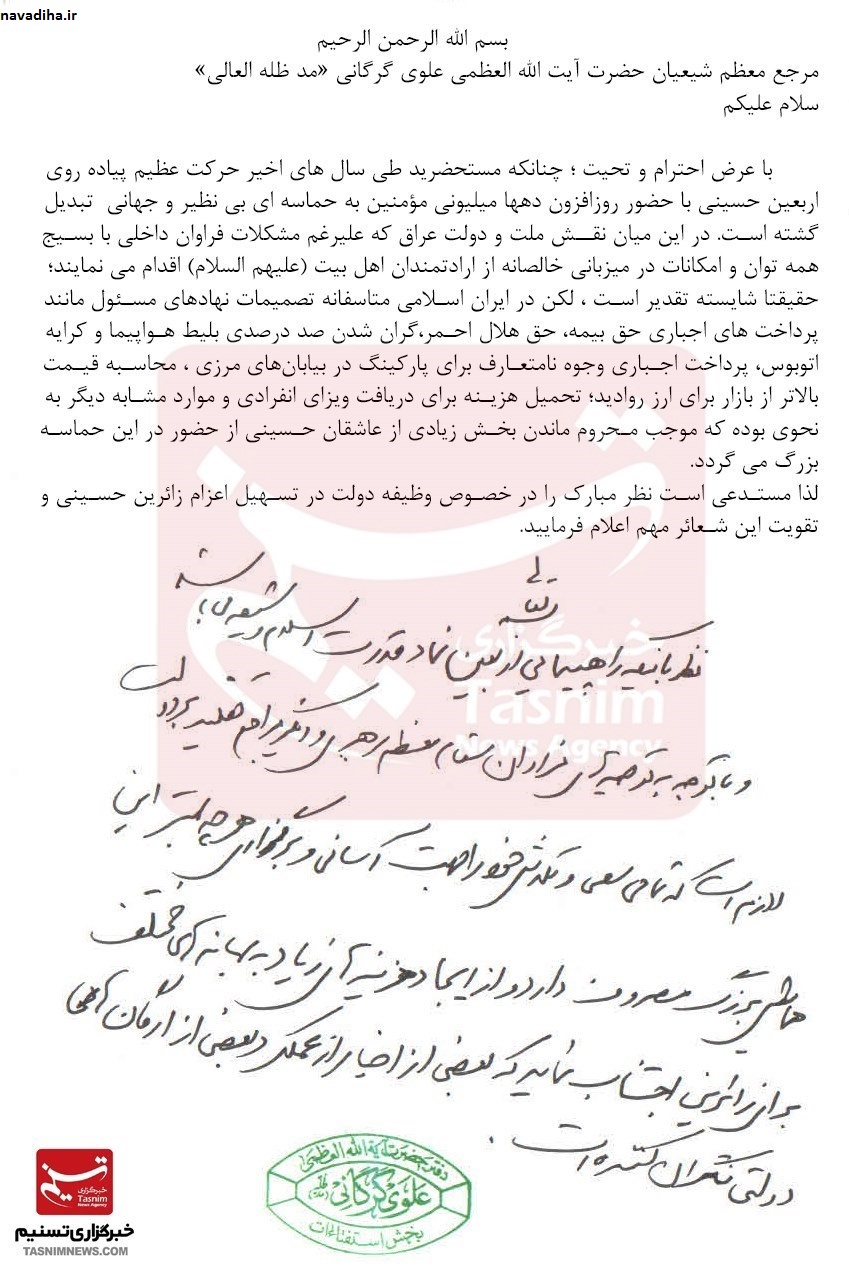 navadiha.ir
بسم الله الرحمن الرحیم
مرجع معظم شیعیان حضرت آیت الله العظمی علوی گرگانی «مد ظله العالی»
سلام علیکم
با عرض احترام و تحیت ؛ چنانکه مستحضرید طی سال های اخیر حرکت عظیم پیاده روی
اربعین حسینی با حضور روزافزون دهها میلیونی مؤمنین به حماسه ای بی نظیر و جهانی تبدیل
گشته است. در این میان نقش ملت و دولت عراق که علیرغم مشکلات فراوان داخلی با بسیج
همه توان و امکانات در میزبانی خالصانه از ارادتمندان اهل بیت (علیهم السلام) اقدام می نمایند؛
حقیقتا شایسته تقدیر است ، لکن در ایران اسلامی متاسفانه تصمیمات نهادهای مسئول مانند
پرداخت های اجباری حق بیمه، حق هلال احمر،گران شدن صد درصدی بلیط هواپیما و کرایه
اتوبوس، پرداخت اجباری وجوه نامتعارف برای پارکینگ در بیابان‌های مرزی ، محاسبه قیمت
بالاتر از بازار برای ارز روادید؛ تحمیل هزینه برای دریافت ویزای انفرادی و موارد مشابه دیگر به
نحوی بوده که موجب محروم ماندن بخش زیادی از عاشقان حسینی از حضور در این حماسه
بزرگ می گردد.
لذا مستدعی است نظر مبارک را در خصوص وظیفه دولت در تسهیل اعزام زائرین حسینی و
تقویت این شعائر مهم اعلام فرمایید.
بسمه تعالی
نظر باینکه راهپیمایی اربعین نماد قدرت اسلام و شیعه می باشد
و با توجه به توصیه های فراوان مقام معظم رهبری و دیگر مراجع تقلید بر دولت
لازم است که تمامی سعی و تلاش خود را جهت آسانی و برگزاری هر چه بهتر این
همایش بزرگ مصروف دارد و از ایجاد هزینه های زیاد به بهانه های مختلف
برای زائرین اجتناب نماید که بعضی از اخبار از عملکرد بعضی از ارگان های
دولتی نگران کننده است.
دفتر حضرت آیة الله العظمی
علوی گرگانی
بخش استفتاءات
خبرگزاری
Tasnim
News Agency
خبرگزاری تسنیم
TASNIMNEWS.COM
خبرگزاری
Tasnim
News Agency